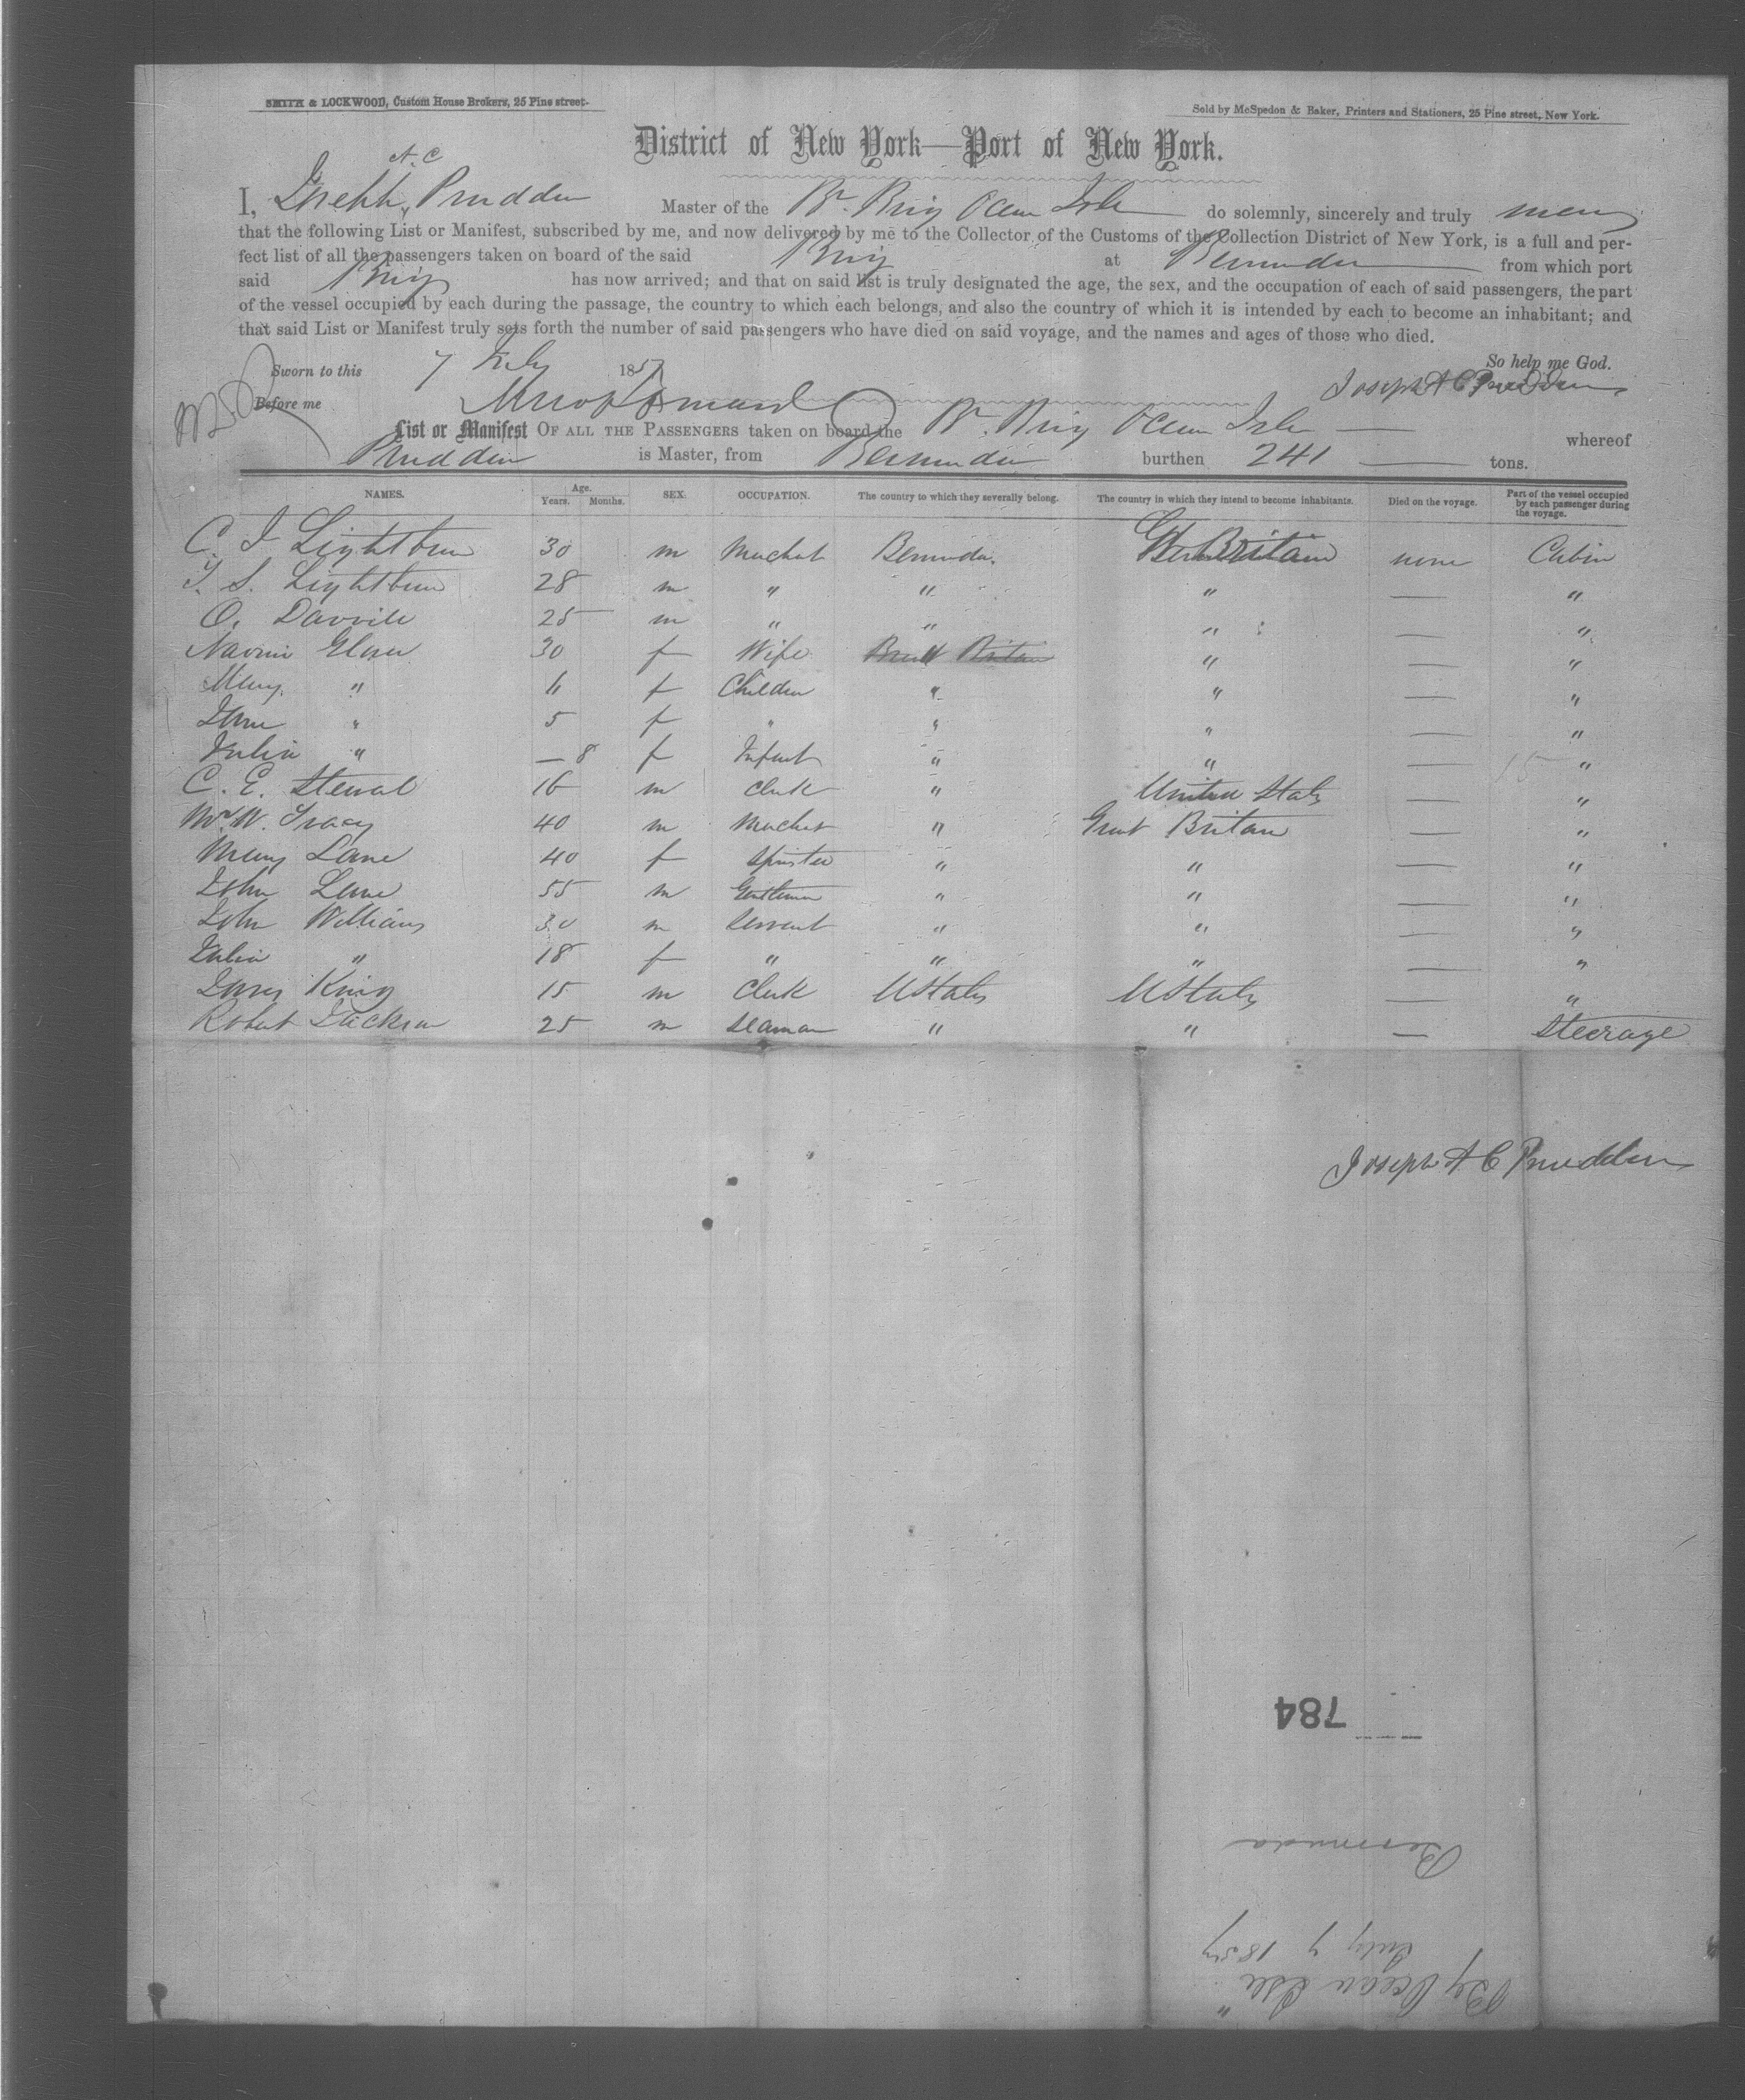 SMITH & LOCKWOOD, Custom House Brokers, 25 Pine street.
Sold by McSpedon & Baker, Printers and Stationers, 25 Pine street, New York.
District of New York—Port of New York.
A. C
I, Joseph Prudden Master of the Br. Brig Ocean Isle do solemnly, sincerely and truly swear
that the following List or Manifest, subscribed by me, and now delivered by me to the Collector of the Customs of the Collection District of New York, is a full and per-
fect list of all the passengers taken on board of the said Brig at Bermuda from which port
said Brig has now arrived; and that on said list is truly designated the age, the sex, and the occupation of each of said passengers, the part
of the vessel occupied by each during the passage, the country to which each belongs, and also the country of which it is intended by each to become an inhabitant; and
that said List or Manifest truly sets forth the number of said passengers who have died on said voyage, and the names and ages of those who died.
Sworn to this 7 July 1857 So help me God.
Before me Joseph A C Prudden
List or Manifest OF ALL THE PASSENGERS taken on board the Br. Brig Ocean Isle whereof
Prudden is Master, from Bermuda burthen 241 tons.
NAMES. Age. Years. Months. SEX. OCCUPATION. The country to which they severally belong. The country in which they intend to become inhabitants. Died on the voyage. Part of the vessel occupied by each passenger during the voyage.
C. I Lightburn 30 m Merchat Bermuda. Gt Britain none Cabin
T. S. Lightburn 28 m " " " — "
O. Darrill 25 m " " " — "
Naomi 30 f Wife Britain " — "
Mary " f Children " " — "
Jane " 5 f " " " — "
Julia " — 8 f Infant " " — 15 "
C. E. 16 m Clerk " United States — "
Mr W. Tracy 40 m Merchat " Great Britain — "
Mary Lane 40 f Spinster " " — "
John Lane 55 m Gentleman " " — "
John Williams 30 m Servant " " — "
Julia " 18 f " " " — "
James King 15 m Clerk UStates UStates — "
Robert Jackson 25 m Seaman " " — Steerage
Joseph A C Prudden
784
Bermuda
July 7 1857
Bg Ocean Isle "